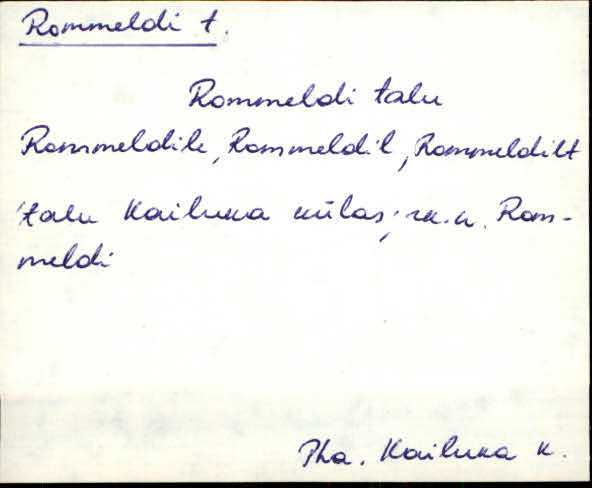 Rommeldi t.
Rommeldi talu
Rommeldile, Rommeldil, Rommeldilt
talu Kailuka külas; rk.n. Rom-
meldi
Pha. Kailuka k.